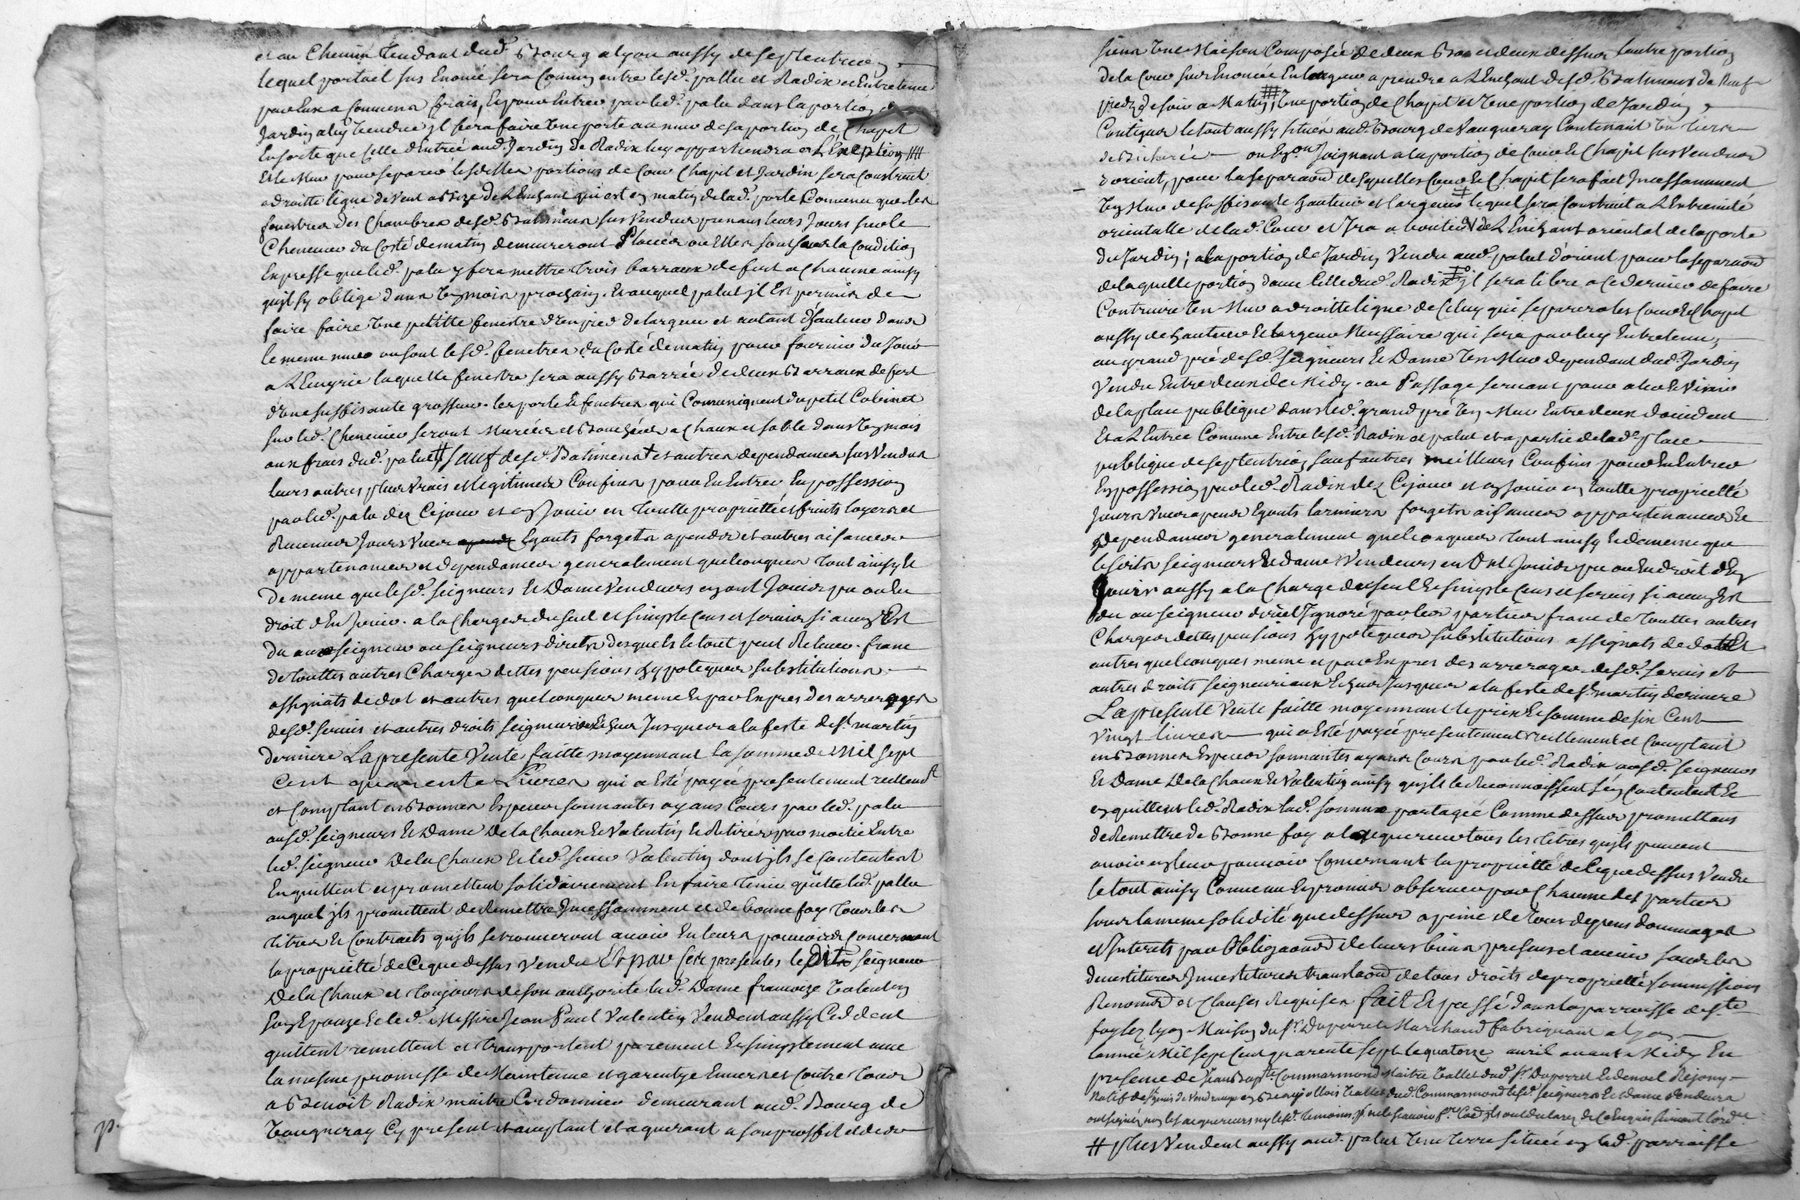 et au Chemin tendant dud. Bourg a lyon aussy de septentrion
lequel portail sus Enoncé sera Commun entre lesd. pallu et Radix et Entretenu
par Eux a Communs frais, Et pour Entrer par led. palu dans la portion de
Jardin a luy vendue jl fera faire une porte au mur de sa portion de Chapit
En sorte que celle d'Entrée aud. Jardin de Radix luy appartiendra a L'Exeption #
Et le Mur pour separer lesdittes portions de Cour Chapit et Jardin sera Construit
a droitte ligne de vent a bize de L'Enchant qui est en matin de lad. porte Comme que les
fenestres des Chambres desd. Batiments sus vendus prenant leurs Jours sur le
Cheneuier du Costé de matin demeureront Placées ou Elles sont sous la Condition
Expresse que led. palu y fera mettre trois barraux de fert a Chacune ainsy
qu'jl s'y oblige dans un mois prochain, Et auquel palut jl Est permis de
faire faire une petitte fenestre d'un pied de largeur et autant d'hauteur dans
le meme mur ou sont lesd. fenetres du Costé de matin pour fournir du Jour
a L'Ecuyrie laquelle fenestre sera aussy Barrée de deux Barraux de fert
d'une suffisante grosseur. les porte Et fenetres qui Communiquent du petit Cabinet
sur led. Cheneuier seront Murées et Bouchées a Chaux et sable dans un mois
aux frais dud. palut # sauf desd. Batiments et autres dependances sus Vendus
leurs autres plus vrais et legitimes Confins pour En Entrer En possession
par led. palu dez Cejour et en Jouir en toutte proprietté et fruits loyers et
Revenus Jours vues Egouts forgets apendis et autres aisances
appartenances et dependances generalement quelconques tout ainsy Et
de meme que lesd. seigneurs Et Dame vendeurs en ont Jouis pu ou dû
droit d'En Jouir. a la Charge du seul et simple Cens et seruis si aucun Est
du aux seigneur ou seigneurs directs desquels le tout peut Releuer. franc
de touttes autres Charges dettes pensions hypoteques substitutions
assignats de dot et autres quelconques meme Et par Exprès des arrerages
desd. seruis et autres droits seigneuriaux Echus Jusques a la feste de st martin
derniere La presente Vente faitte moyennant la somme de Mil sept
Cent quarente Liures qui a Esté payée presentement reellement
et Comptant en Bonnes Especes sonnantes ayans Cours par led. palu
ausd. seigneurs Et Dame De la Chaux Et Valentin Et Retirés par moitié Entre
led. seigneur De la Chaux et led. sieur Valentin dont jls se Contentent
En quittent et promettent solidairement En faire tenir quitte led. pallu
auquel jls promettent de Remettre Jncessamment et de bonne foy tous les
titres Et Contraits qu'jls se trouueront auoir En leurs pouuoirs Concernant
la proprietté de Ceque dessus Vendu Et par ses presentes ledit seigneur
De la Chaux et toujours de son authorité lad. Dame francoize Valentin
son Epouze Et led. Messire Jean Paul Valentin Vendent aussy Cedent
quittent remettent et transportent purement Et simplement auec
la mesme promesse de Maintenue et garentye Enuers et Contre tous
a Benoit Radix maitre Cordonnier demeurant aud. Bourg de
Vaugneray Cy present et acceptant et aquerant a son proffit et des
p.
siens une Maison Composée de deux Bas et deux dessus l'autre portion
de la Cour sus Enoncée En longueur a prendre a L'Enchant desd. Batiments de
pieds de soir a Matin # Une portion de Chapit et Une portion de Jardin
Contigus le tout aussy situés aud. Bourg de Vaugneray Contenant un tiers
de Bicherée ou Enon Joignant a la portion de Cour Et Chapit sus Vendus
d'orient, pour la separaon desquelles Cour Et Chapit sera fait Jncessamment
un Mur de suffisante hauteur et largeur lequel sera Construit a L'Extremité
orientalle de lad. Cour et Jra aboutir de L'Enchant oriental de la porte
du Jardin; a la portion de Jardin Vendue aud. palut d'orient pour la separaon
de laquelle portion dauec Celle dud. Radix jl sera libre a ce dernier de faire
Contruire un Mur a droitte ligne de Celuy qui separera les Cour Et Chapit
aussy de hauteur Et largeur Necessaire qui sera par luy Entretenu;
au grand pré desd. seigneurs Et Dame un Mur dependant dud. Jardin
Vendu Entre deux de Midy. au Passage seruant pour aler Et Venir
de la place publique dans led. grand pré un Mur Entre deux d'occident
Et a L'Entrée Comune Entre lesd. Radix et palut et a partie de lad. place
publique de septentrion sauf autres meilleurs Confins pour En Entrer
En possession par led. Radix dez Cejour et en Jouir en toutte proprietté
Jours Vues apends Egouts larmiers forgets aisances appartenances Et
Dependances generalement quelconques tout ainsy Et de meme que
lesdits seigneurs Et dame Vendeurs en Ont Jouis pu ou Eu droit d'En
Jouir aussy a la Charge du seul Et simple Cens et seruis si aucun Est
du au seigneur direct Ignoré par les parties franc de touttes autres
Charges dettes pensions hypoteques substitutions assignats de dot Et
autres quelconques meme et par Exprès des arrerages desd. seruis et
autres droits seigneuriaux Echus Jusques a la feste de st martin derniere
La presente Vente faitte moyennant le prix Et somme de six Cent
Vingt liures qui a Esté payée presentement reellement et Comptant
en Bonnes Especes sonnantes ayans Cours par led. Radix ausd. seigneurs
Et Dame De la Chaux Et Valentin ainsy qu'jls le Reconnoissent s'En Contentent Et
en quittent led. Radix lad. somme partagée Comme dessus promettans
de Remettre de Bonne foy a tous les titres qu'jls peuuent
auoir en leur pouuoir Concernant la proprietté de Ceque dessus Vendu
le tout ainsy Conuenu Et promis obseruer par Chacune des parties
sous la meme solidité que dessus a peine de tous depens dommages
et Interets par Obligaons de leurs biens presens et auenir sous les
deuestitures Jnuestitures translaons de tous droits de proprietté soumissions
Renoncés et Clauses Requises fait Et passé dans la parroisse de ste
foy lez lyon Maison du sr Duperret Marchand fabriquant a Lyon
l'année Mil sept Cent quarente sept le quatorze auril auant Midy En
presence de Commarmond Maitre Vallet dud. sr Duperret Et de
lesd. seigneurs Et dame vendeurs
ont signé, non les acquereurs ny lesd. temoins pour ne le sauoir
# plus Vendent aussy aud. palut une terre située en lad. parroisse